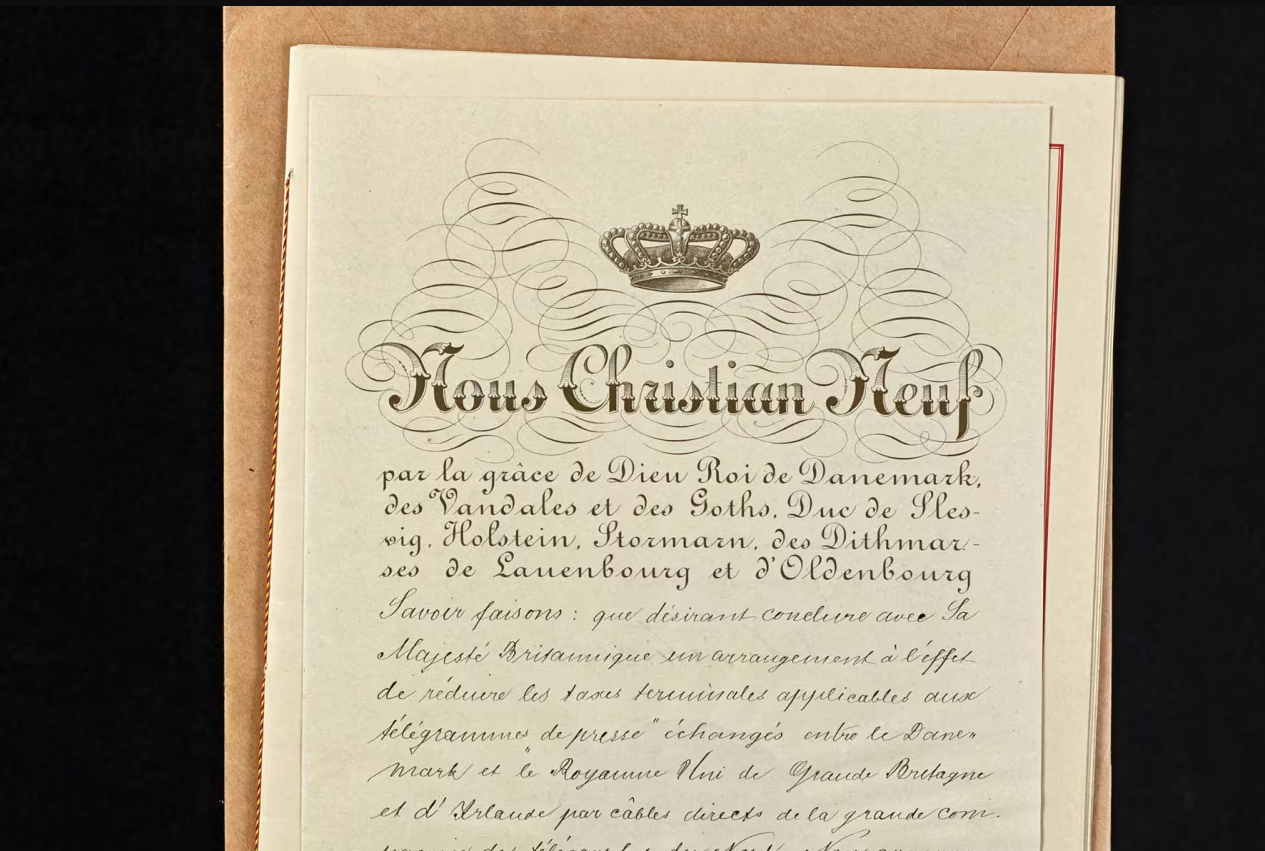 Nous Christian Neuf
par la grâce de Dieu Roi de Danemark,
des Vandales et des Goths, Duc de Sles-
vig, Holstein, Stormarn, des Dithmar-
ses de Lauenbourg et d'Oldenbourg
Savoir faisons : que désirant conclure avec Sa
Majesté Britannique un arrangement à l'effet
de réduire les taxes terminales applicables aux
télégrammes "de presse" échangés entre le Dane-
mark et le Royaume Uni de Grande Bretagne
et d'Irlande par câbles directs de la grande com-